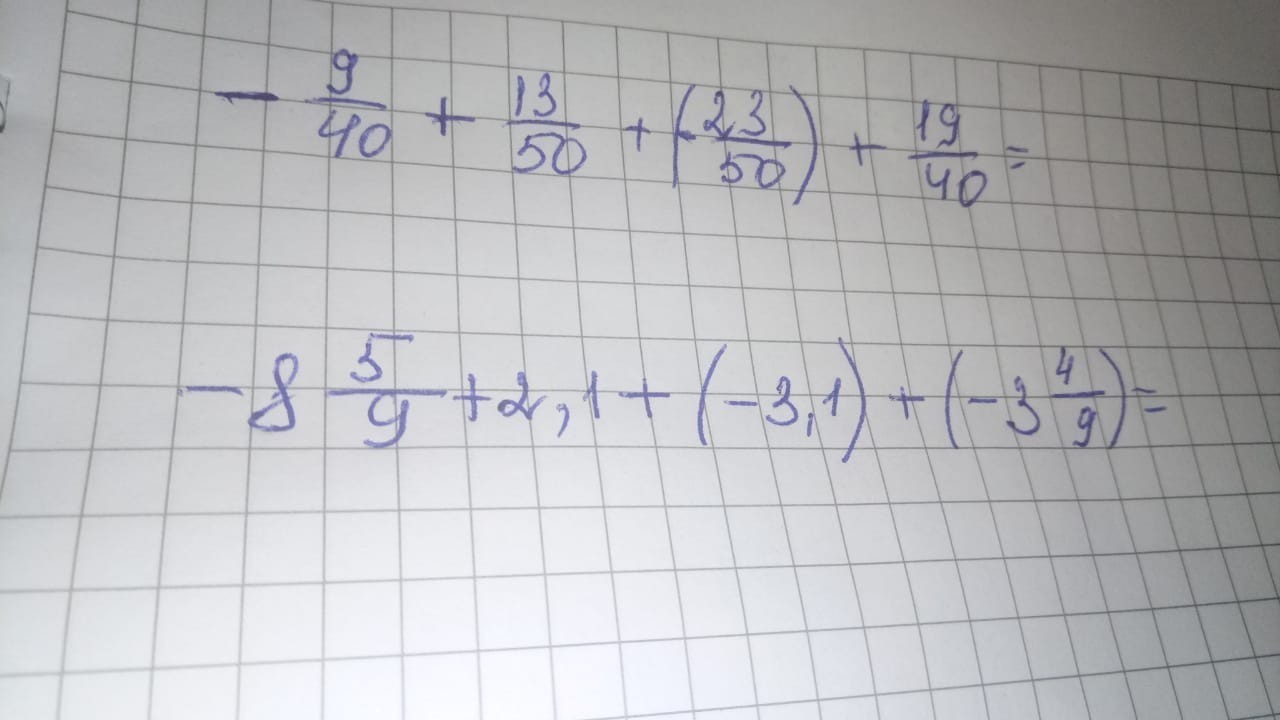 - 9/40 + 13/50 + (-23/50) + 19/40 =
- 8 5/9 + 2,1 + (-3,1) + (-3 4/9) =